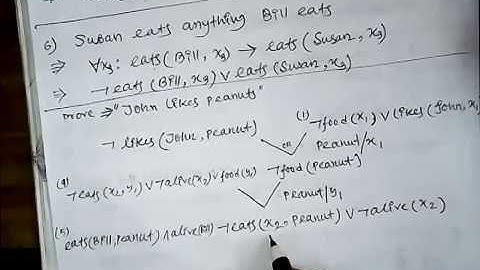 6) Susan eats anything Bill eats
⇒ ∀x₃: eats(Bill, x₃) → eats(Susan, x₃)
⇒ ¬eats(Bill, x₃) ∨ eats(Susan, x₃)
prove ⇒ "John likes peanuts"
¬likes(John, Peanut) (1) ¬food(x₁) ∨ likes(John, x₁
Peanut/x₁
(4) ¬eats(x₂, y₁) ∨ ¬alive(x₂) ∨ food(y₁) ¬food(Peanut)
Peanut/y₁
(5) eats(Bill, Peanut) ∧ alive(Bill) ¬eats(x₂, Peanut) ∨ ¬alive(x₂)